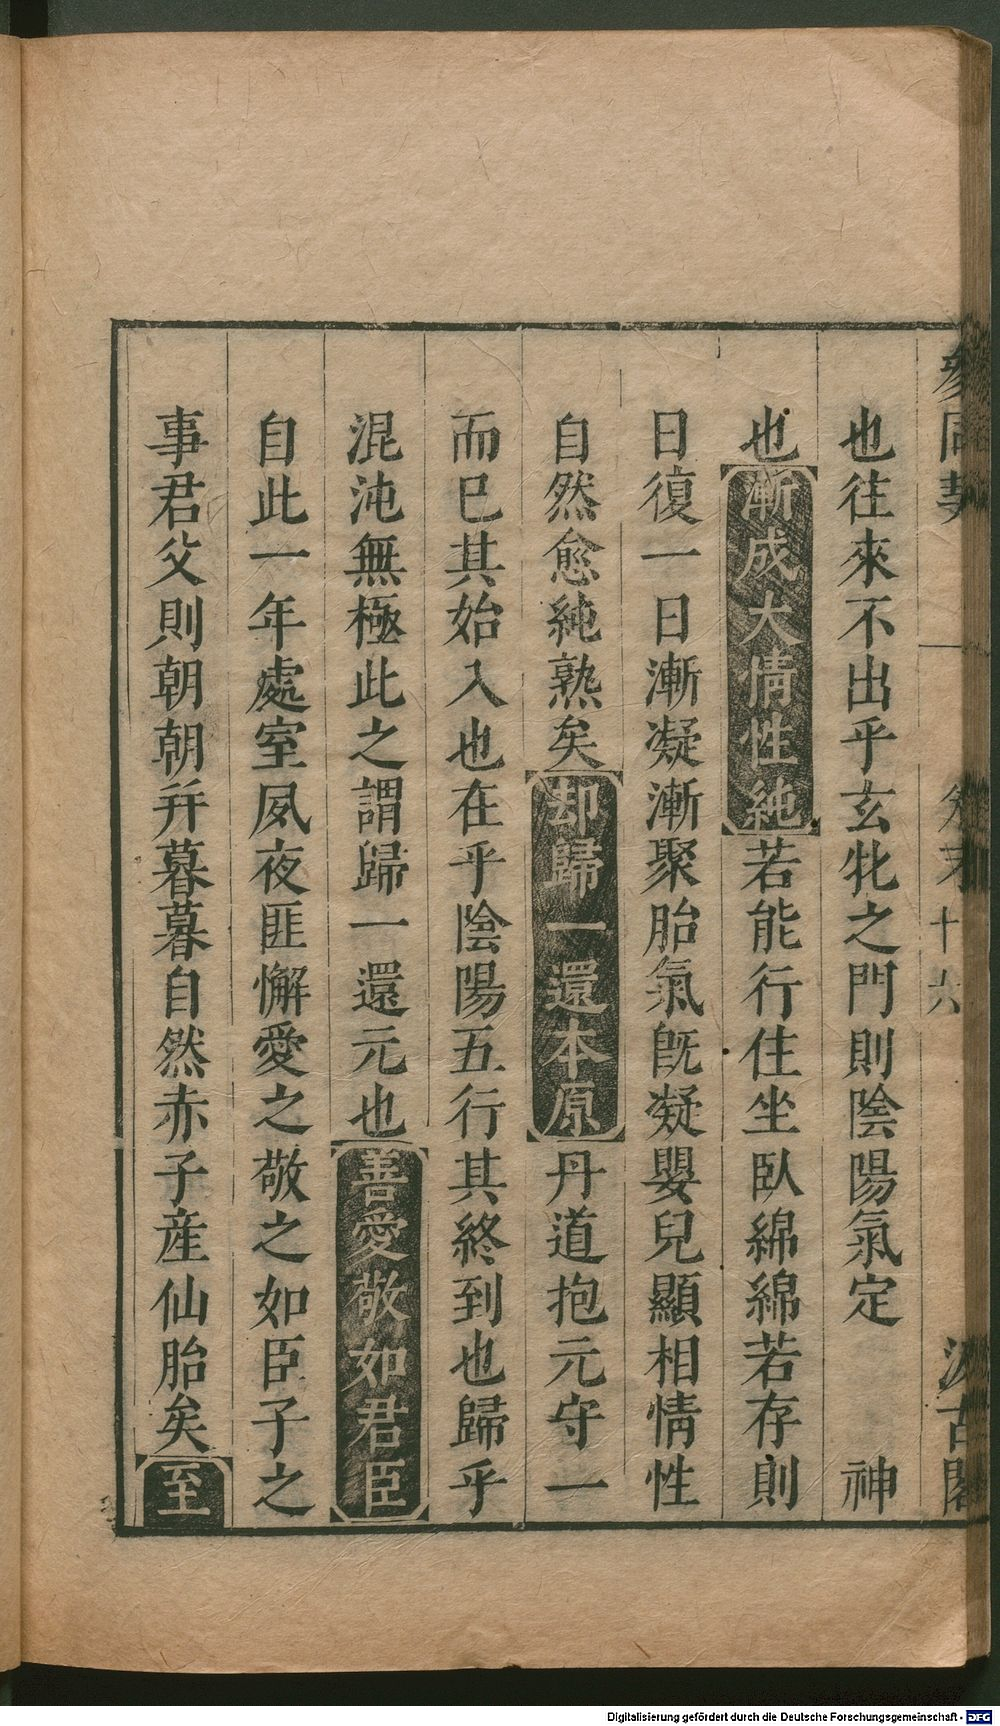 參同契
卷末
十六
汲古閣
也往來不出乎玄牝之門則陰陽氣定　神
也漸成大情性純若能行住坐臥綿綿若存則
日復一日漸凝漸聚胎氣旣凝嬰兒顯相情性
自然愈純熟矣却歸一還本原丹道抱元守一
而巳其始入也在乎陰陽五行其終到也歸乎
混沌無極此之謂歸一還元也善愛敬如君臣
自此一年處室夙夜匪懈愛之敬之如臣子之
事君父則朝朝幷暮暮自然赤子産仙胎矣至
Digitalisierung gefördert durch die Deutsche Forschungsgemeinschaft - DFG